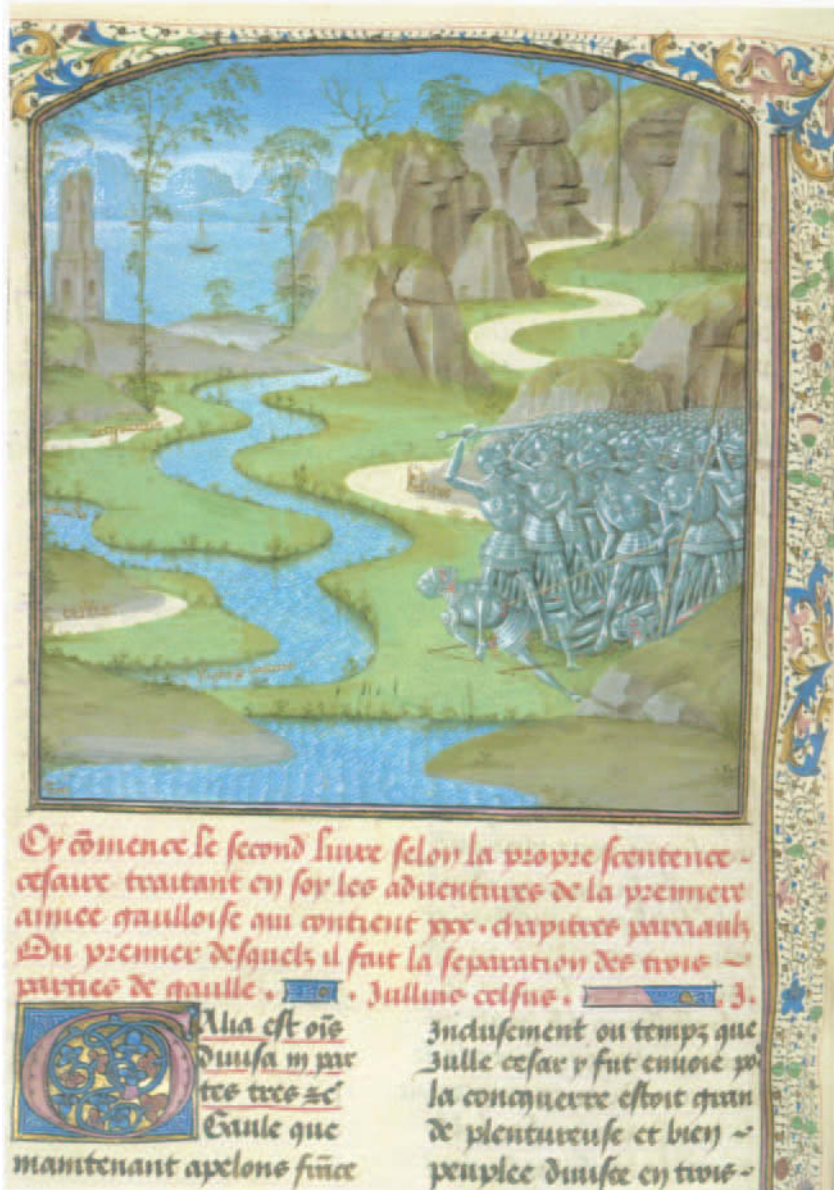 Cy cōmence le second liure selon la propre scentence -
cesaire traitant en soy les aduentures de la premiere
annee gaulloise qui contient xxx . chapitres parciaulz
Du premier desquelz il fait la separation des trois ~
parties de gaulle . . Jullius celsus . . J.
Galia est oīs
diuisa in par
tes tres ⁊c̄
Gaule que
maintenant apelons frāce
Inclusement ou temps que
Julle cesar y fut enuoie po
la concquerre estoit gran
de plentureuse et bien ~
peuplee diuisee en trois -